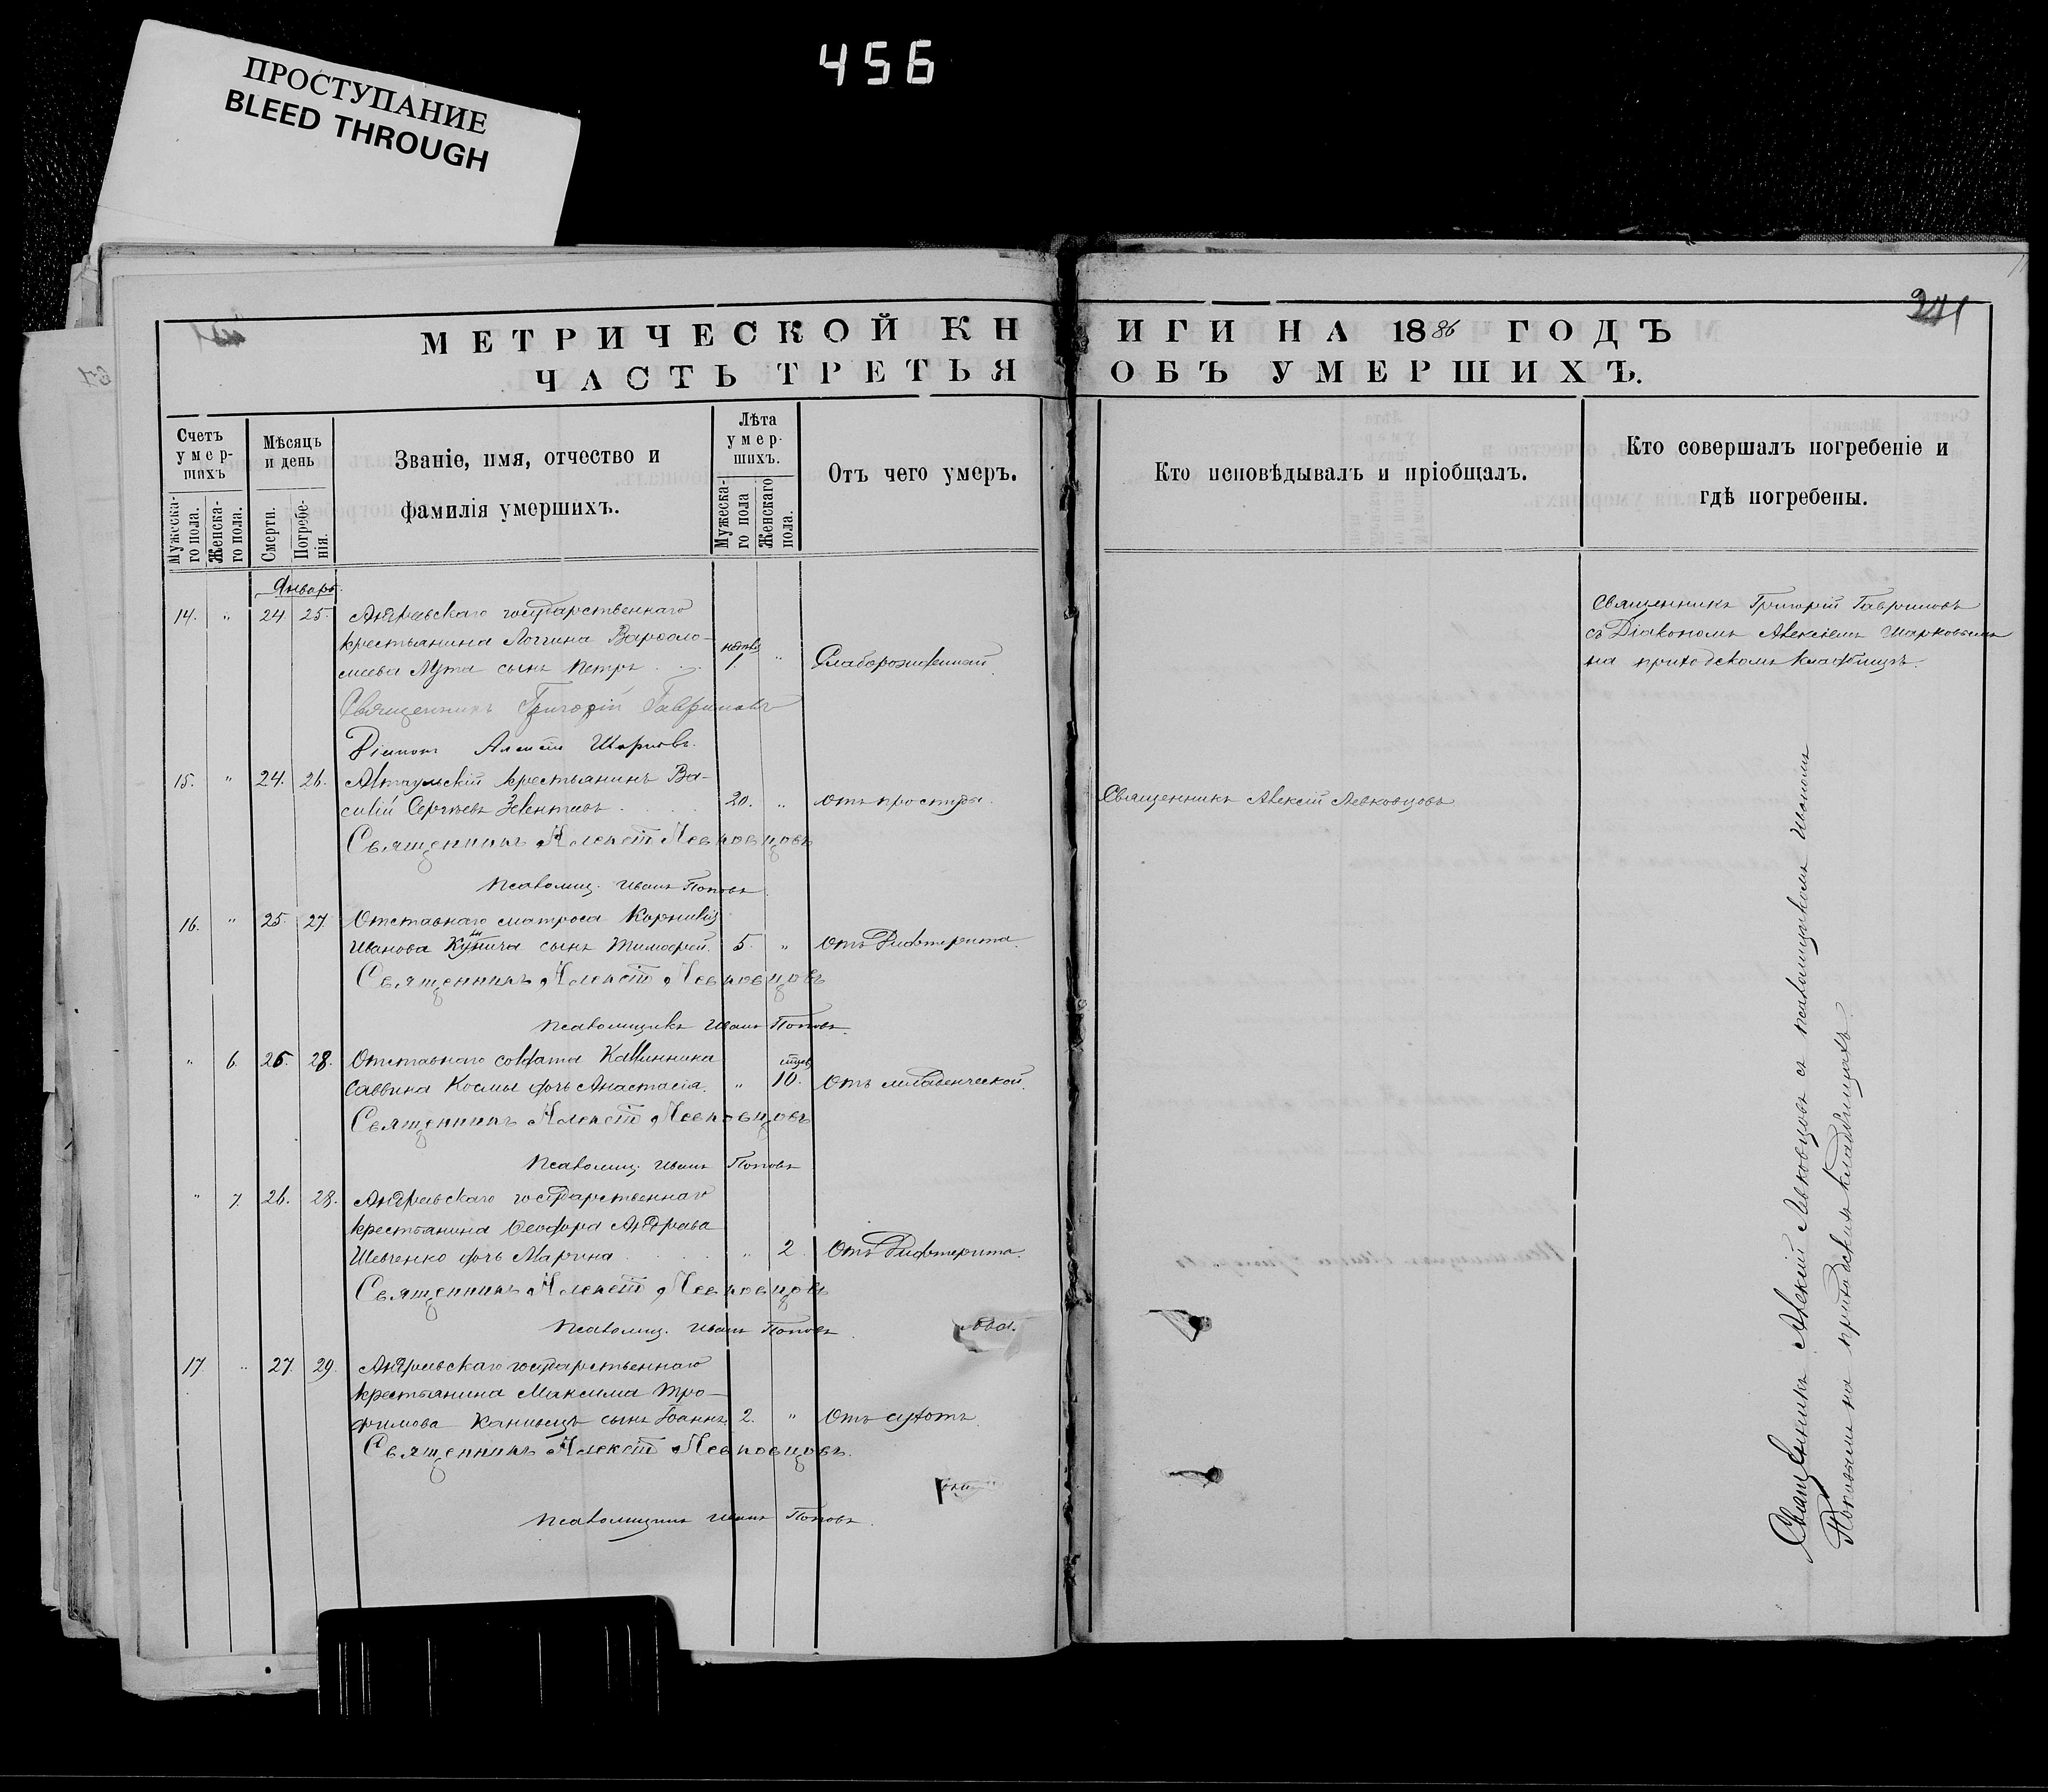 456
ПРОСТУПАНИЕ
BLEED THROUGH
241
МЕТРИЧЕСКОЙ КНИГИ НА 1886 ГОДЪ
ЧАСТЬ ТРЕТЬЯ ОБЪ УМЕРШИХЪ.
Счетъ умер-шихъ
Мужеска-го пола.
Женска-го пола.
Мѣсяцъ и день
Смерти.
Погребе-нія.
Званіе, имя, отчество и
фамилія умершихъ.
Лѣта умер-шихъ.
Мужеска-го пола
Женскаго пола.
Отъ чего умеръ.
Кто исповѣдывалъ и пріобщалъ.
Кто совершалъ погребеніе и
гдѣ погребены.
Январь.
14. " 24. 25. Андреевскаго государственнаго
крестьянина Логгина Варѳоло-
меева Лута сынъ Петръ 1. " Слаборожденный.
Священникъ Григорій Гавриловъ
съ Діакономъ Алексіемъ Шарковымъ
на приходскомъ кладбищѣ.
Священникъ Григорій Гавриловъ
Діаконъ Алексій Шарковъ.
15. " 24. 26. крестьянинъ Ва-
силій Сергѣевъ 20. " отъ простуды.
Священникъ Алексій Левковцовъ
Священникъ Алексій Левковцовъ
Псаломщ. Иванъ Поповъ.
16. " 25. 27. Отставнаго матроса Корнилія
Иванова сынъ Тимоѳей. 5. " Отъ Дифтерита.
Священникъ Алексій Левковцовъ
Псаломщикъ Иванъ Поповъ.
" 6. 28. Отставнаго солдата Каллиника
Саввина Космы дочь Анастасія. " 10. Отъ младенческой.
Священникъ Алексій Левковцовъ
Псаломщ. Иванъ Поповъ
" 7. 26. 28. Андреевскаго государственнаго
крестьянина Ѳеодора Андреева
Шевченко дочь Марина " 2. Отъ Дифтерита.
Священникъ Алексій Левковцовъ
Псаломщ. Иванъ Поповъ
17 " 27. 29. Андреевскаго государственнаго
крестьянина Максима Тро-
фимова сынъ Іоаннъ. 2. " Отъ сухотъ.
Священникъ Алексій Левковцовъ.
Псаломщикъ Иванъ Поповъ.
Священникъ Алексій Левковцовъ съ псаломщикомъ Иваномъ
Поповымъ на приходскихъ кладбищахъ.